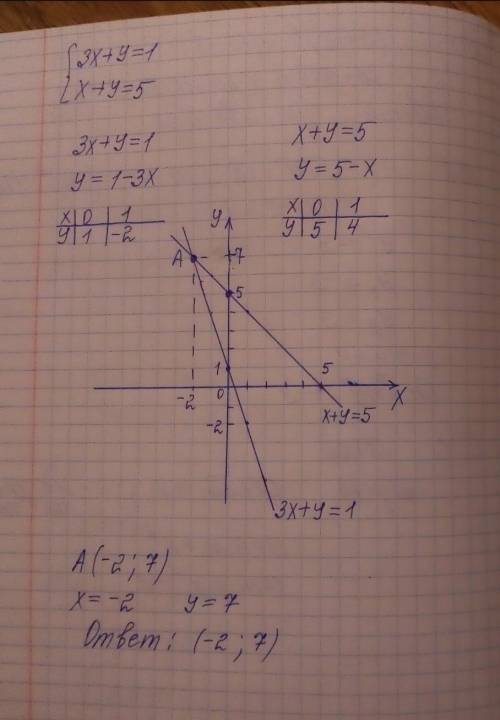 {3x+y=1
x+y=5
3x+y=1
y=1-3x
x|0|1
y|1|-2
x+y=5
y=5-x
x|0|1
y|5|4
y
A
7
5
1
5
-2
0
x
-2
x+y=5
3x+y=1
A(-2;7)
x=-2 y=7
Ответ: (-2;7)